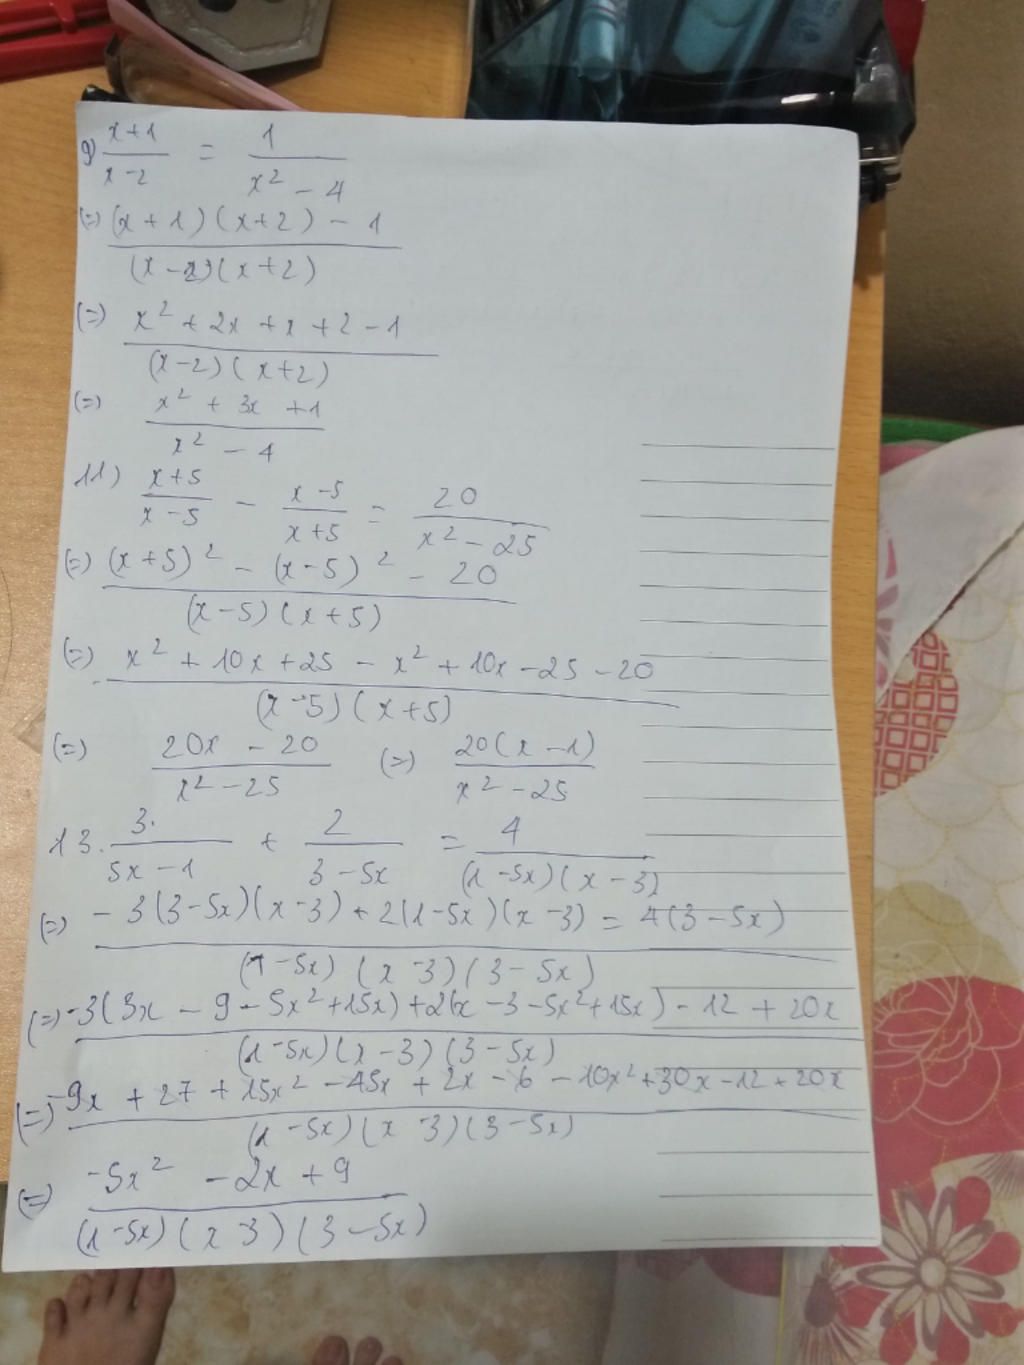 9) \frac{x+1}{x-2} = \frac{1}{x^2-4}
(=) \frac{(x+1)(x+2)-1}{(x-2)(x+2)}
(=) \frac{x^2+2x+x+2-1}{(x-2)(x+2)}
(=) \frac{x^2+3x+1}{x^2-4}
11) \frac{x+5}{x-5} - \frac{x-5}{x+5} = \frac{20}{x^2-25}
(=) \frac{(x+5)^2-(x-5)^2-20}{(x-5)(x+5)}
(=) \frac{x^2+10x+25-x^2+10x-25-20}{(x-5)(x+5)}
(=) \frac{20x-20}{x^2-25} (=) \frac{20(x-1)}{x^2-25}
13. \frac{3}{5x-1} + \frac{2}{3-5x} = \frac{4}{(1-5x)(x-3)}
(=) \frac{-3(3-5x)(x-3)+2(1-5x)(x-3)=4(3-5x)}{(1-5x)(x-3)(3-5x)}
(=) \frac{-3(3x-9-5x^2+15x)+2(x-3-5x^2+15x)-12+20x}{(1-5x)(x-3)(3-5x)}
(=) \frac{-9x+27+15x^2-45x+2x-6-10x^2+30x-12+20x}{(1-5x)(x-3)(3-5x)}
(=) \frac{-5x^2-2x+9}{(1-5x)(x-3)(3-5x)}